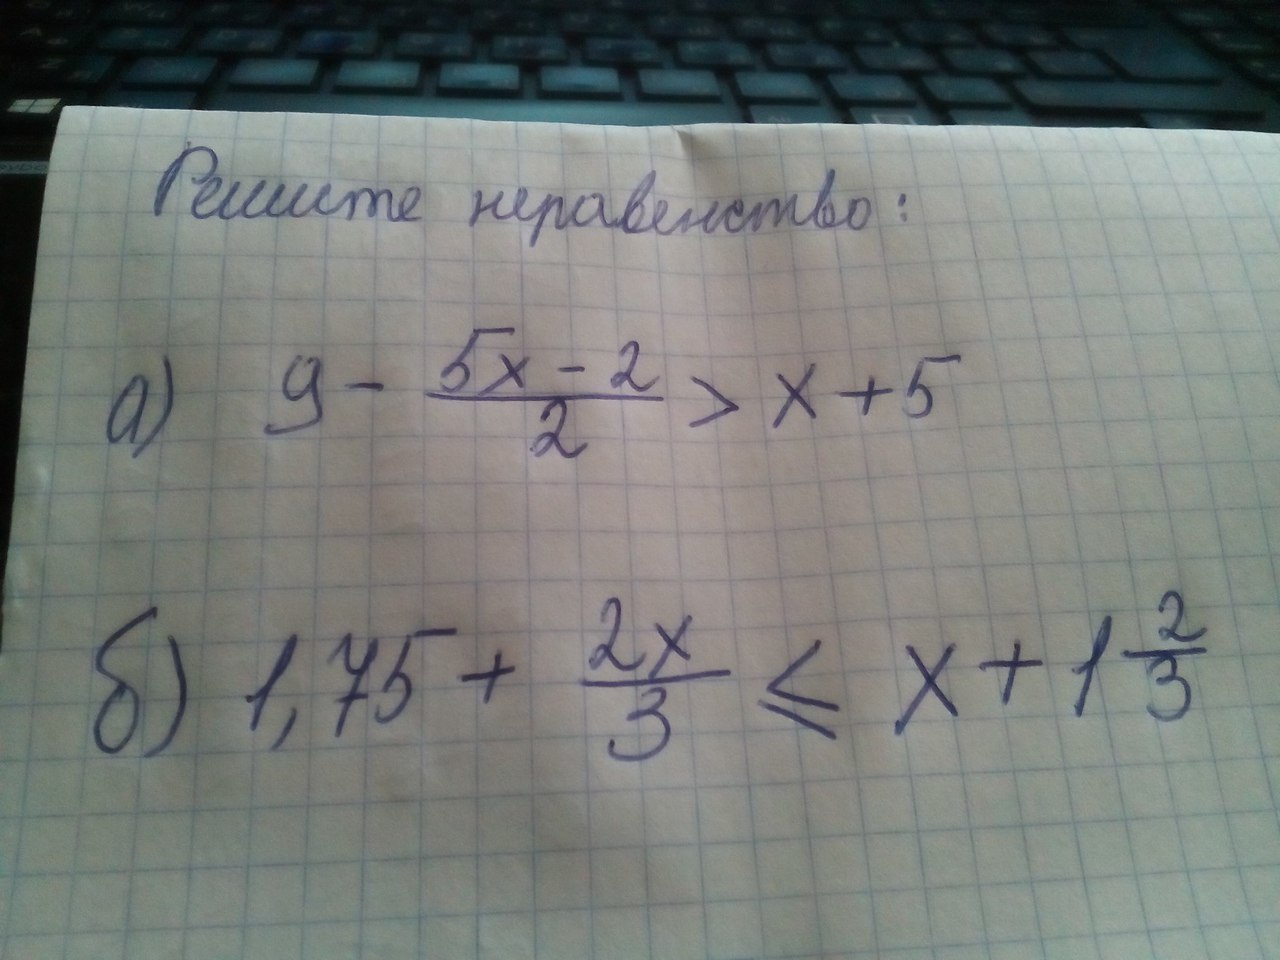 Решите неравенство:
а) 9 - \frac{5x - 2}{2} > x + 5
б) 1,75 + \frac{2x}{3} ≤ x + 1\frac{2}{3}